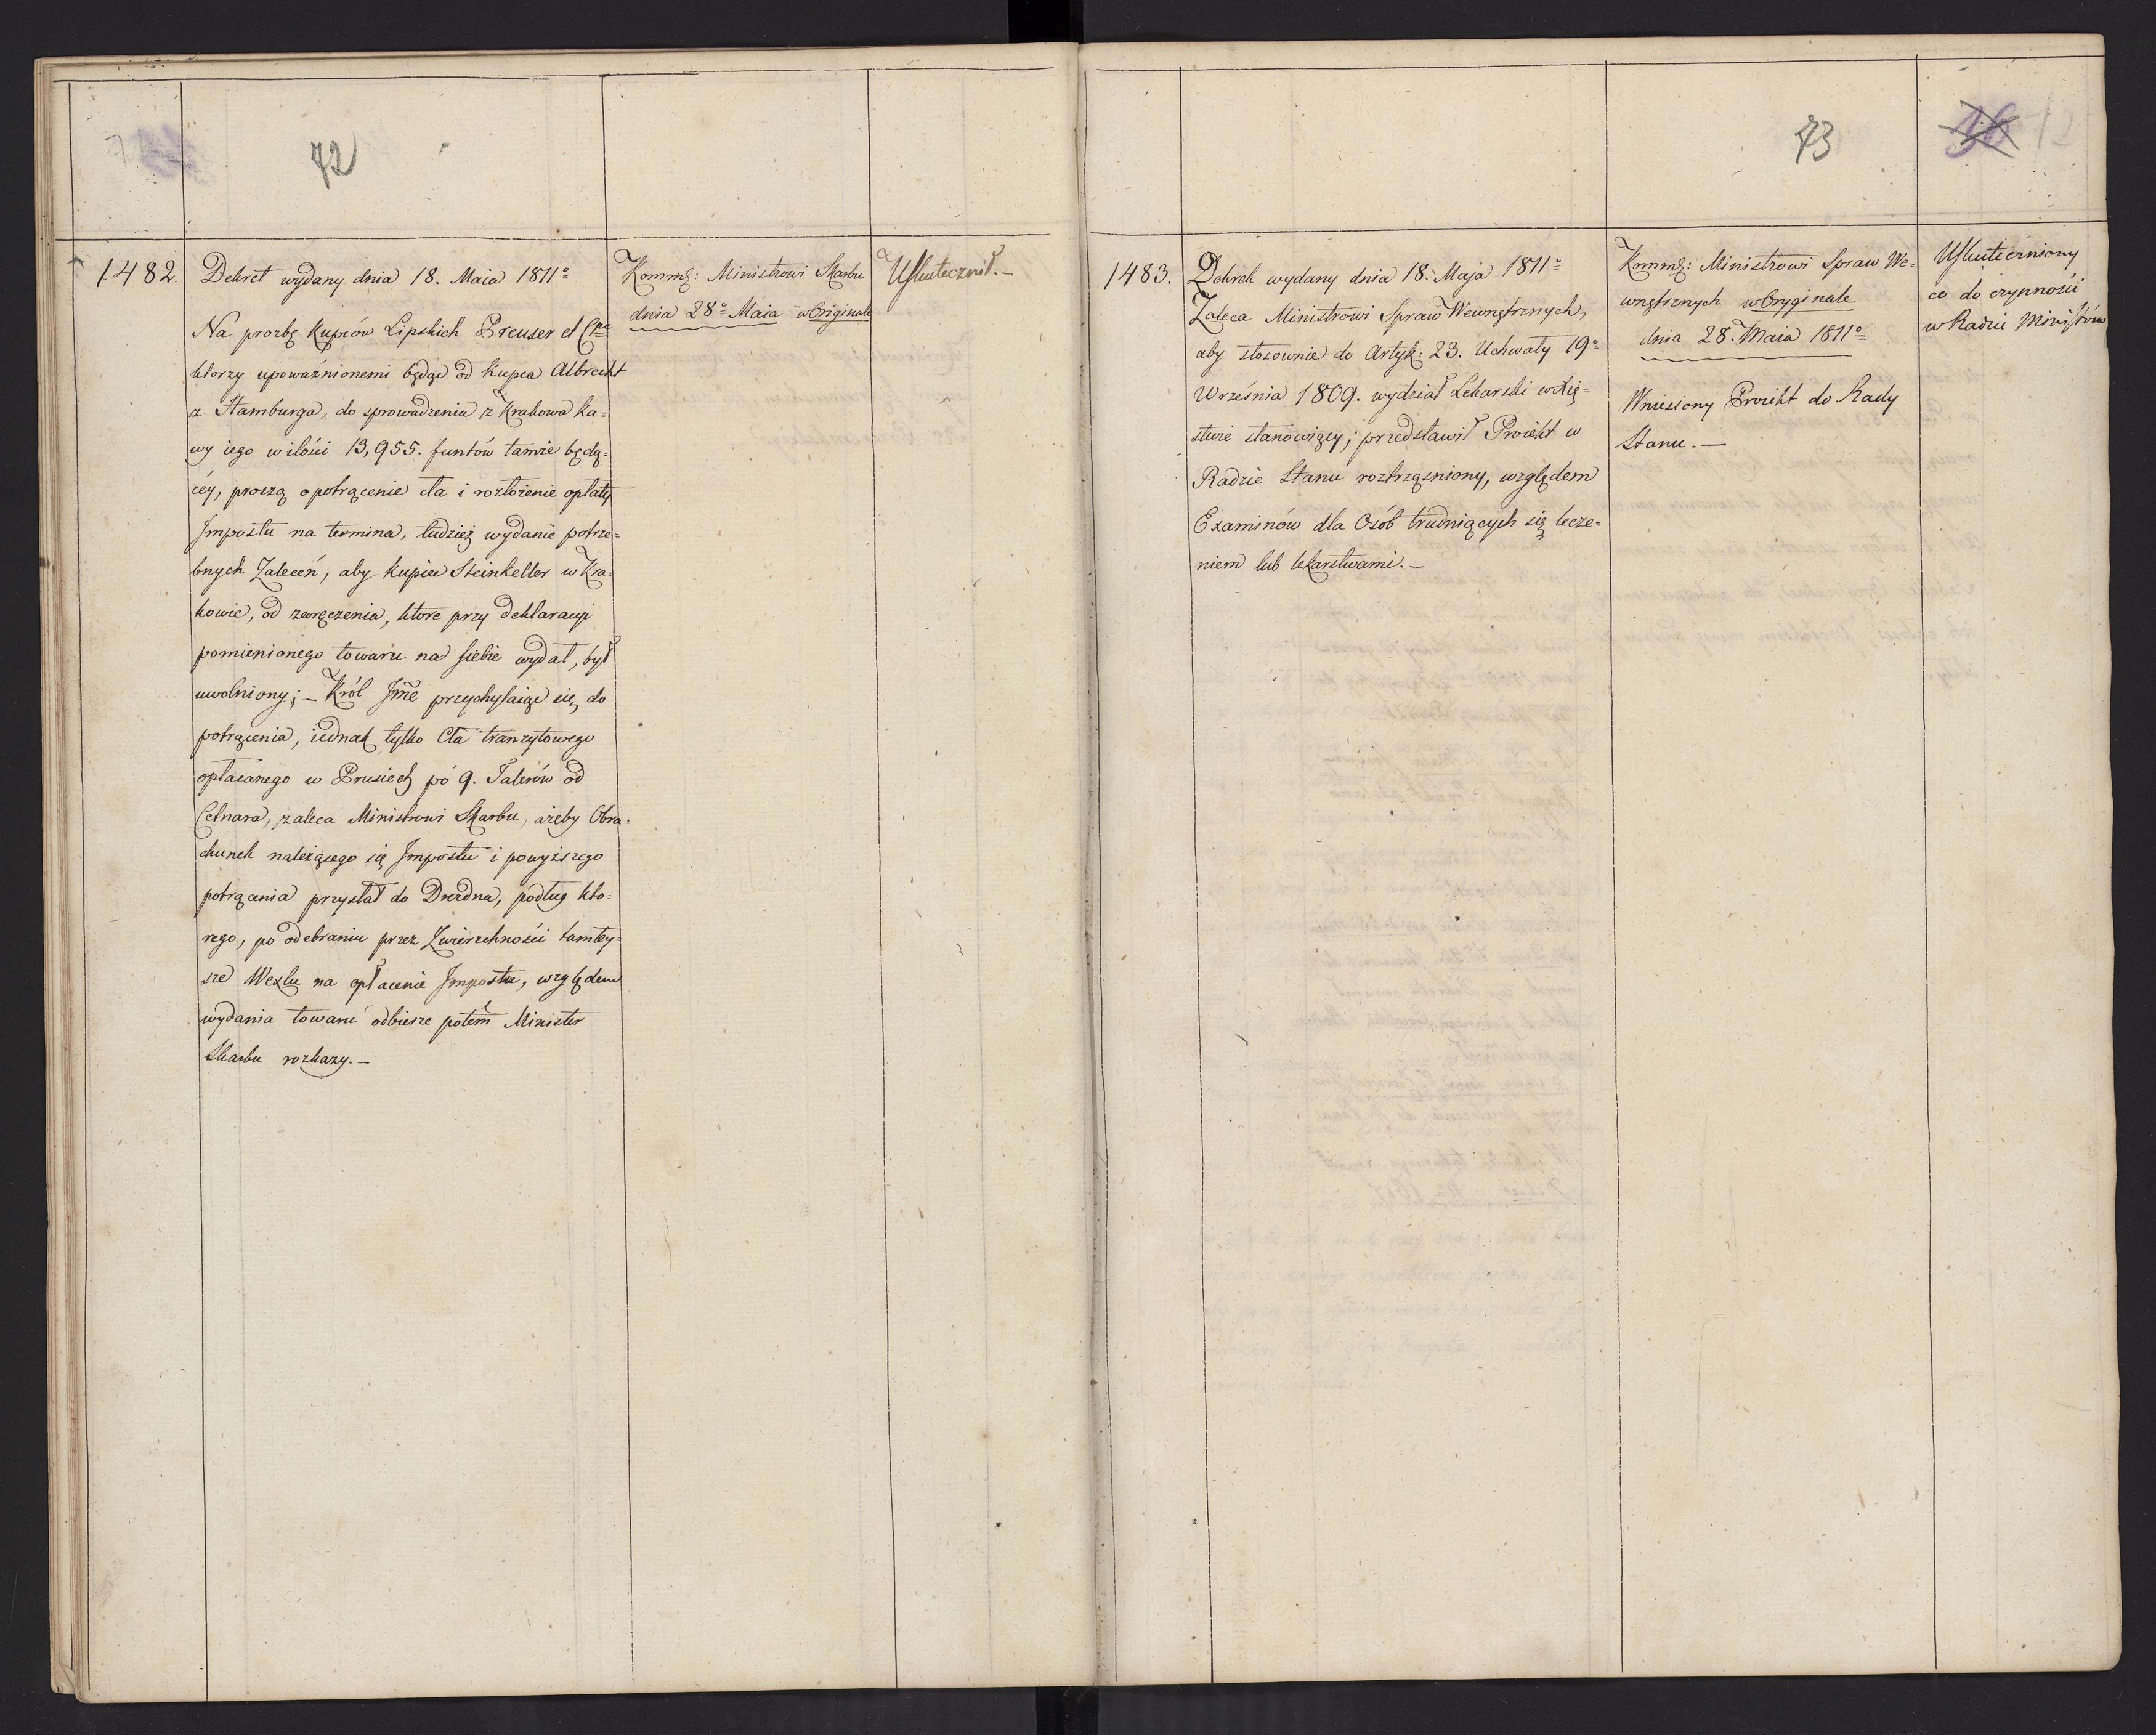 72
1482.
Dekret wydany dnia 18. Maia 1811o
Na prozbę Kupców Lipskich Preuser et Cpe
ktorzy upoważnionemi będąc od Kupca Albrecht
z Hamburga, do sprowadzenia z Krakowa ka=
wy iego w ilości 13,955. funtów tamże będą=
céy, proszą o potrącenie cła i rozłożenie opłaty
Jmpostu na termina, tudzież wydanie potrze=
bnych Zaleceń, aby kupiec Steinkeller w Kra=
kowie, od zaręczenia, ktore przy deklaracyi
pomienionego towaru na siebie wydał, był
uwolniony; – Król Jmć przychylaiąc się do
potrącenia, iednak tylko Cła tranzytowego
opłacanego w Prusiech po 9. Talerów od
Cetnara, zaleca Ministrowi Skarbu, ażeby Obra=
chunek należącego się Jmpostu i powyższego
potrącenia przysłał do Drezdna, podług kto=
rego, po odebraniu przez Zwierzchności tamtey=
sze Wexlu na opłacenie Jmpostu, względem
wydania towaru odbierze potém Minister
Skarbu rozkazy. –
Kommg: Ministrowi Skarbu
dnia 28o Maia w Originale
Uskutecznił. –
73
36
12
1483.
Dekret wydany dnia 18. Maja 1811o
Zaleca Ministrowi Spraw Wewnętrznych,
aby stosownie do Artyk: 23. Uchwały 19o
Września 1809. wydział Lekarski w Xię=
stwie stanowiący; przedstawił Proiekt w
Radzie Stanu roztrząsniony, względem
Examinów dla Osób trudniących się lecze=
niem lub lekarstwami. –
Kommg: Ministrowi Spraw We=
wnętrznych w Oryginale
dnia 28. Maia 1811o
Wniesiony Proiekt do Rady
Stanu. –
Uskuteczniony
co do czynności
w Radzie Ministrów